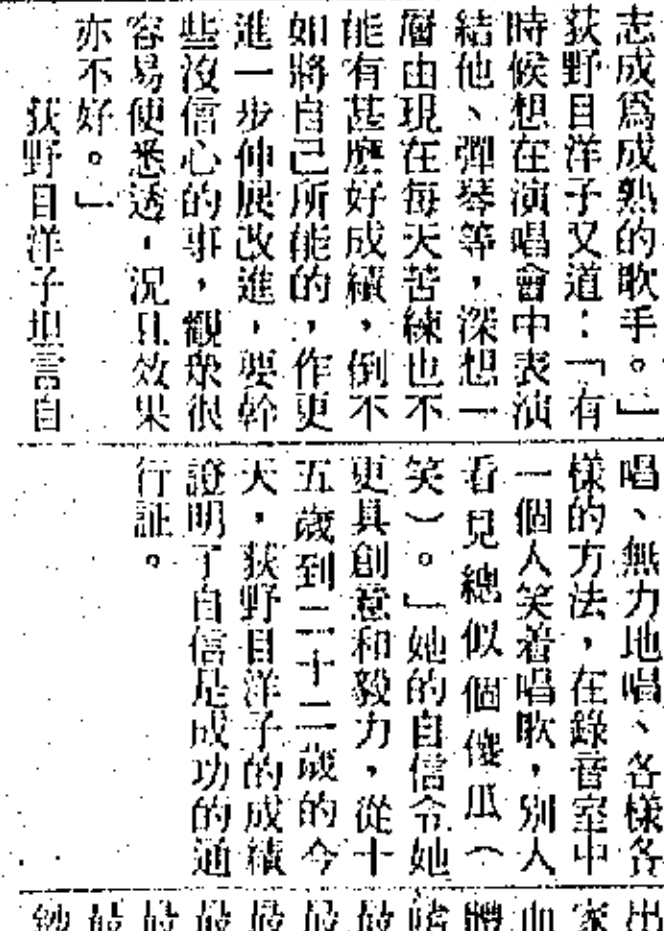 志成爲成熟的歌手。」
荻野目洋子又道:「有
時候想在演唱會中表演
結他、彈琴等,深想一
層由現在每天苦練也不
能有甚麼好成績,倒不
如將自己所能的,作更
進一步伸展改進,要幹
些沒信心的事,觀衆很
容易便悉透,況且效果
亦不好。」
荻野目洋子坦言自
唱、無力地唱、各樣各
樣的方法,在錄音室中
一個人笑着唱歌,別人
看見總似個傻瓜(
笑)。」她的自信令她
更具創意和毅力,從十
五歲到二十二歲的今
天,荻野目洋子的成績
證明了自信是成功的通
行証。